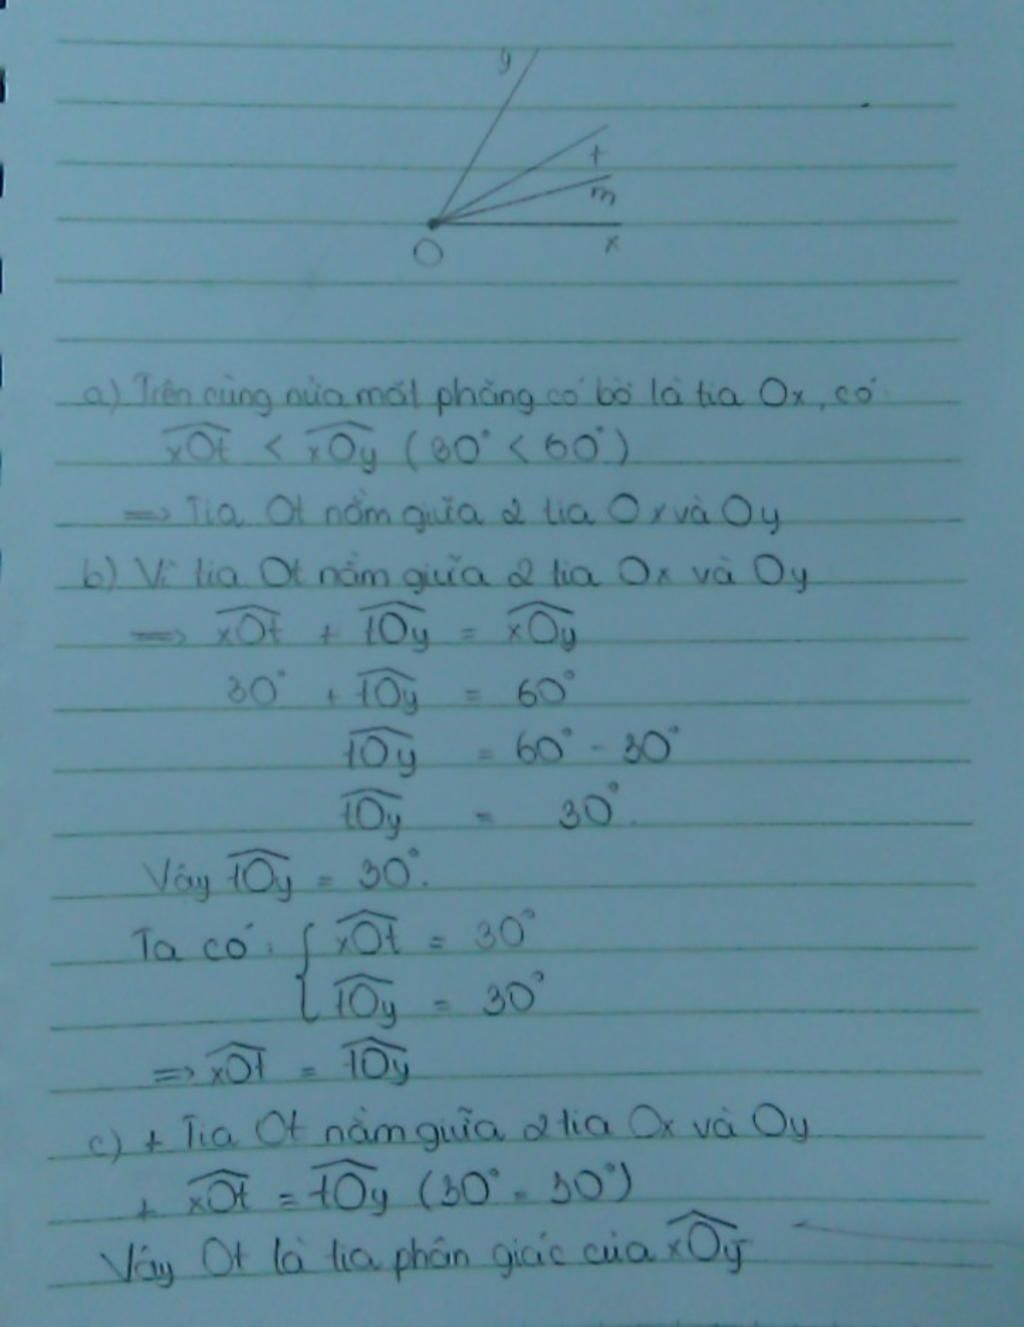 y
t
m
x
O
a) Trên cùng nửa mặt phẳng có bờ là tia Ox, có:
xOt < xOy (30° < 60°)
=> Tia Ot nằm giữa 2 tia Ox và Oy
b) Vì tia Ot nằm giữa 2 tia Ox và Oy
=> xOt + tOy = xOy
30° + tOy = 60°
tOy = 60° - 30°
tOy = 30°.
Vậy tOy = 30°.
Ta có: { xOt = 30°
tOy = 30°
=> xOt = tOy
c) + Tia Ot nằm giữa 2 tia Ox và Oy
+ xOt = tOy (30° = 30°)
Vậy Ot là tia phân giác của xOy